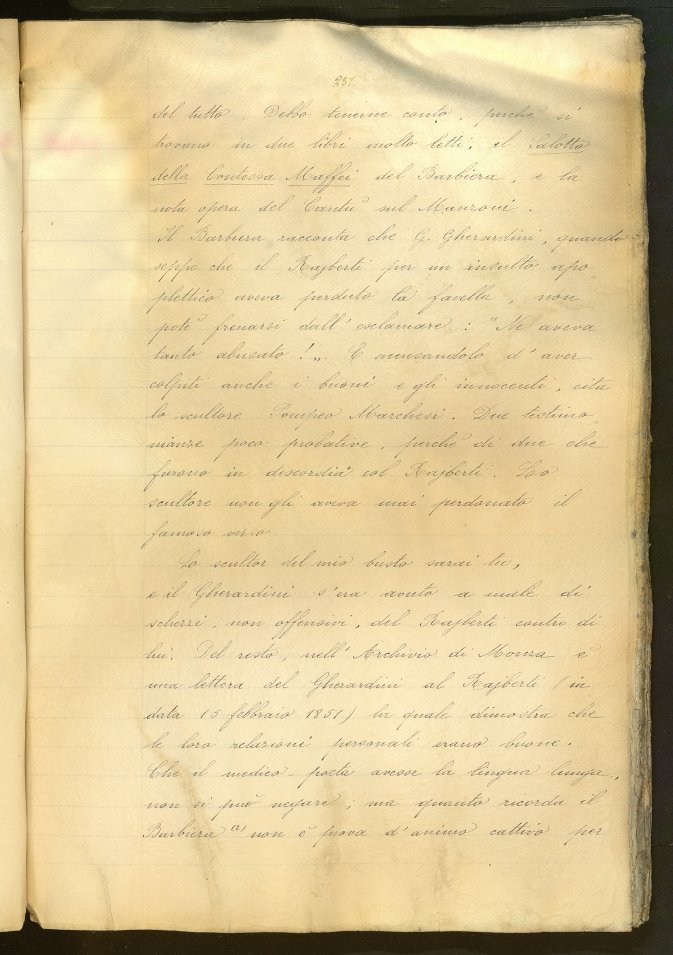 231.
del tutto. Debbo tenerne conto, perchè si
trovano in due libri molto letti, il Salotto
della Contessa Maffei del Barbiera, e la
nota opera del Cantù sul Manzoni.
Il Barbiera racconta che G. Gherardini, quando
seppe che il Rajberti per un insulto apo-
plettico aveva perduto la favella, non
potè frenarsi dall'esclamare: "Ne aveva
tanto abusato!„. E accusandolo d'aver
colpiti anche i buoni e gli innocenti, cita
lo scultore Pompeo Marchesi. Due testimo-
nianze poco probative, perchè di due che
furono in discordia col Rajberti. Lo
scultore non gli aveva mai perdonato il
famoso verso
Lo scultor del mio busto sarai tu,
e il Gherardini s'era avuto a male di
scherzi, non offensivi, del Rajberti contro di
lui. Del resto, nell'Archivio di Monza è
una lettera del Gherardini al Rajberti (in
data 15 febbraio 1851) la quale dimostra che
le loro relazioni personali erano buone.
Che il medico-poeta avesse la lingua lunga,
non si può negare; ma quanto ricorda il
Barbiera (2) non è prova d'animo cattivo per